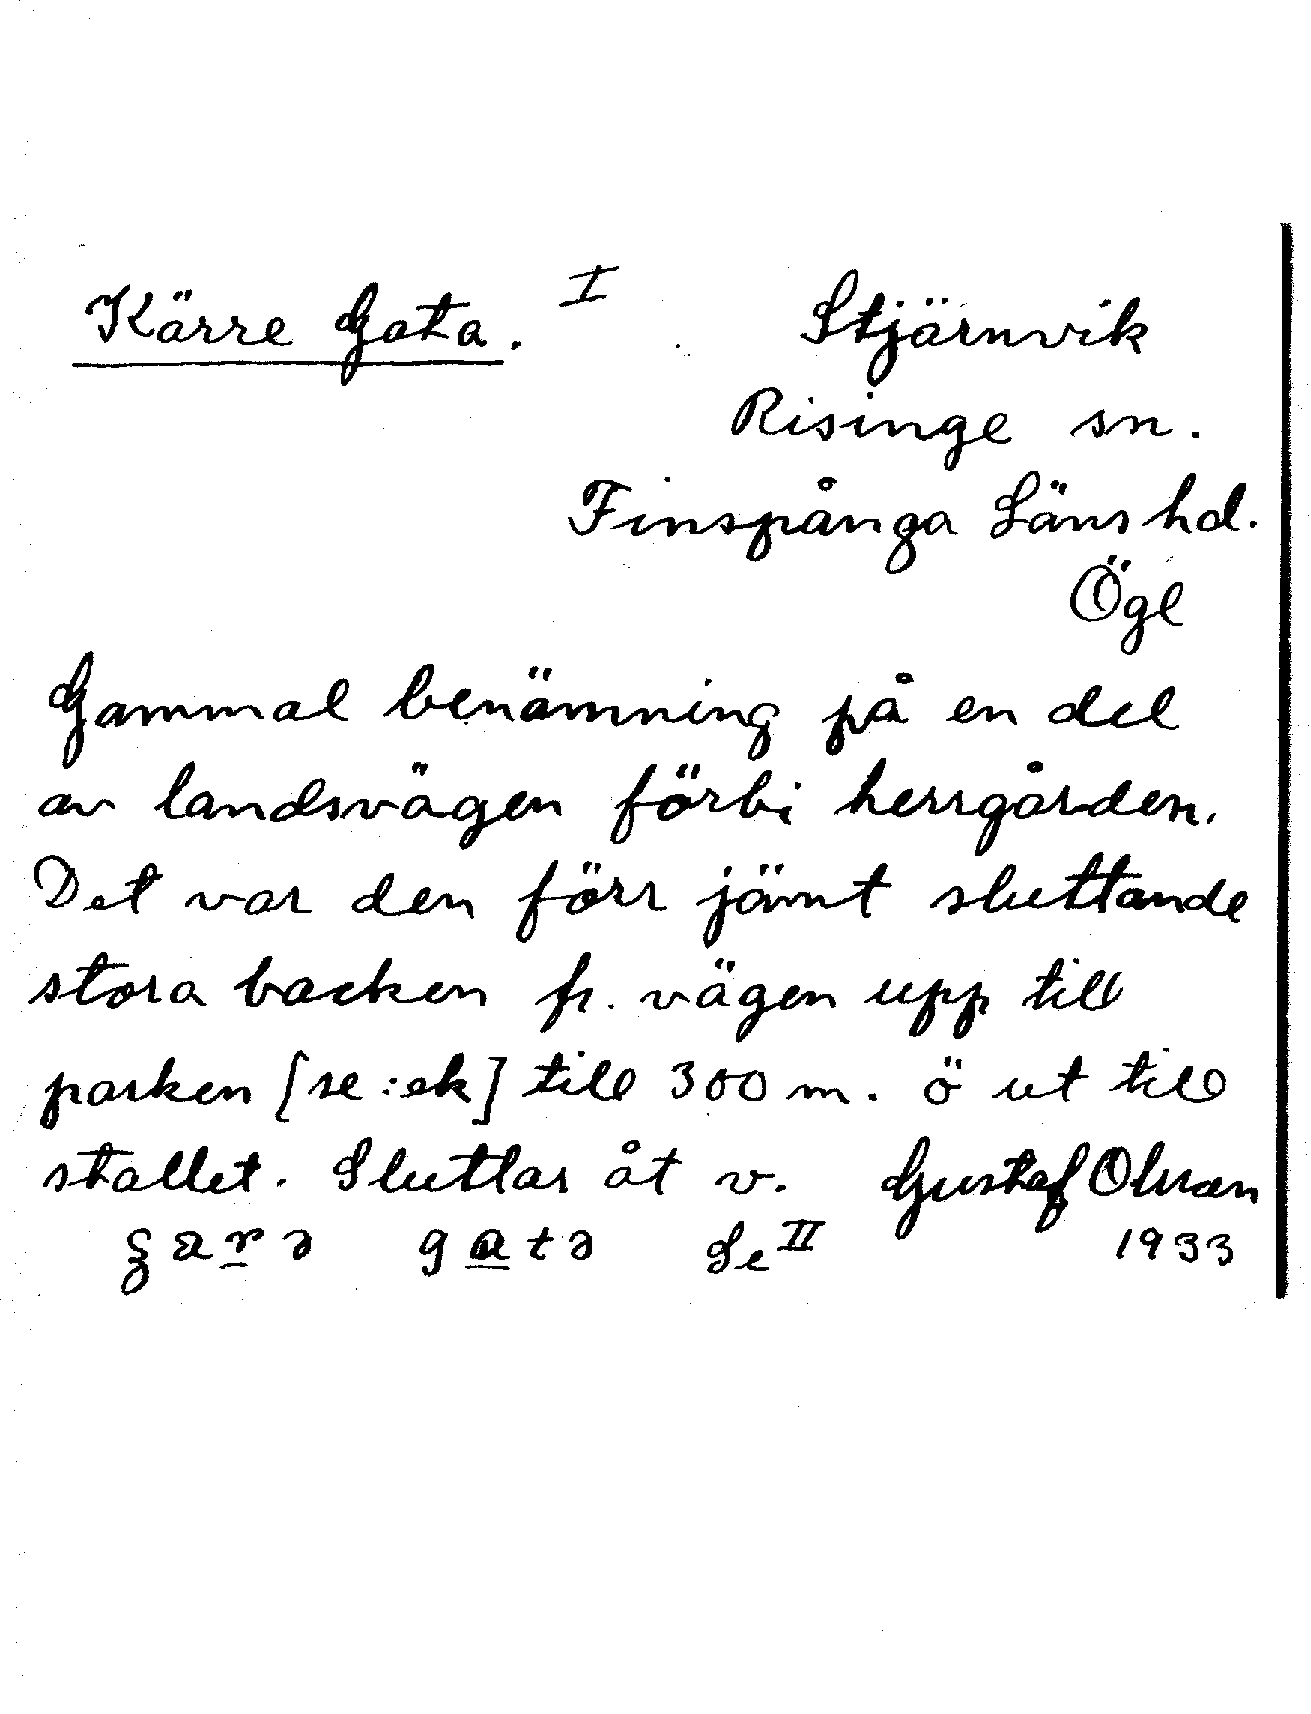 Kärre Gata. I Stjärnvik
Risinge sn.
Finspånga Läns hd.
Ögl
Gammal benämning på en del
av landsvägen förbi herrgården.
Det var den förr jämt sluttande
stora backen fr. vägen upp till
parken [se: ek] till 300 m. ö ut till
stallet. Sluttar åt v. Gustaf Olsson
gata Se II 1933